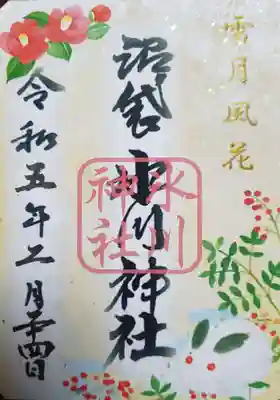 雪月風花
沼袋氷川神社
氷川神社
令和五年二月二十四日